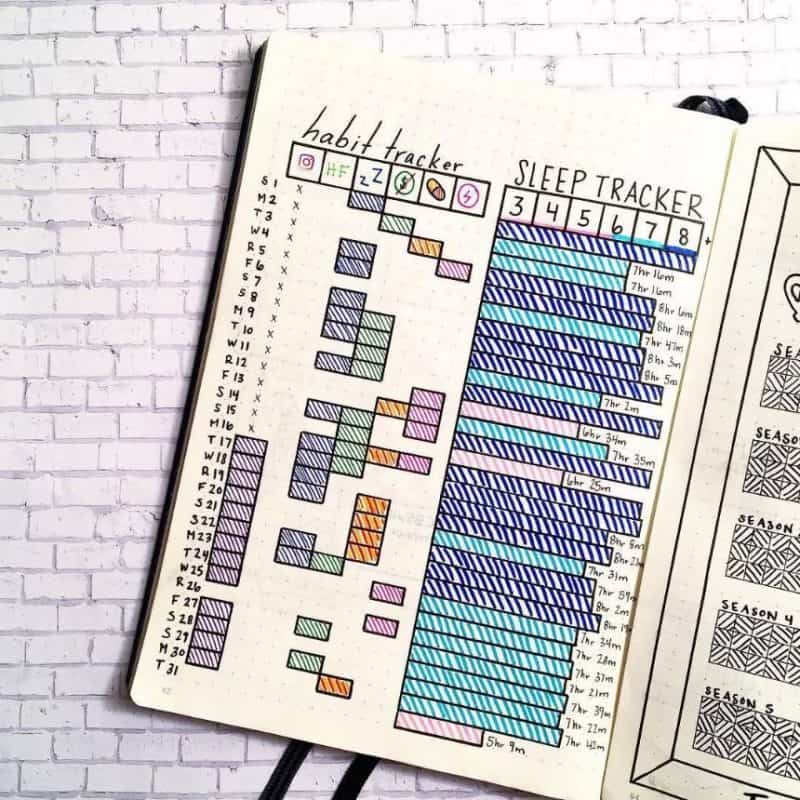 habit tracker
HF
zzZ
S 1
M 2
T 3
W 4
R 5
F 6
S 7
S 8
M 9
T 10
W 11
R 12
F 13
S 14
S 15
M 16
T 17
W 18
R 19
F 20
S 21
S 22
M 23
T 24
W 25
R 26
F 27
S 28
S 29
M 30
T 31
SLEEP TRACKER
3 4 5 6 7 8 +
7hr 16m
7hr 16m
8hr 6m
8hr 18m
7hr 47m
8hr 3m
8hr 5m
7hr 2m
6hr 34m
7hr 35m
6hr 25m
8hr 8m
8hr
7hr 31m
7hr 59m
8hr 2m
8hr 19m
7hr 34m
7hr 28m
7hr 31m
7hr 21m
7hr 39m
7hr 22m
7hr 42m
5hr 9m
SEASON 4
SEASON 5